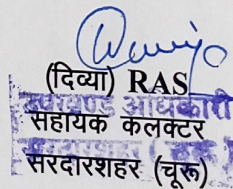 (दिव्या) RAS
उपखण्ड अधिकारी
सहायक कलक्टर
सरदारशहर (चूरू)